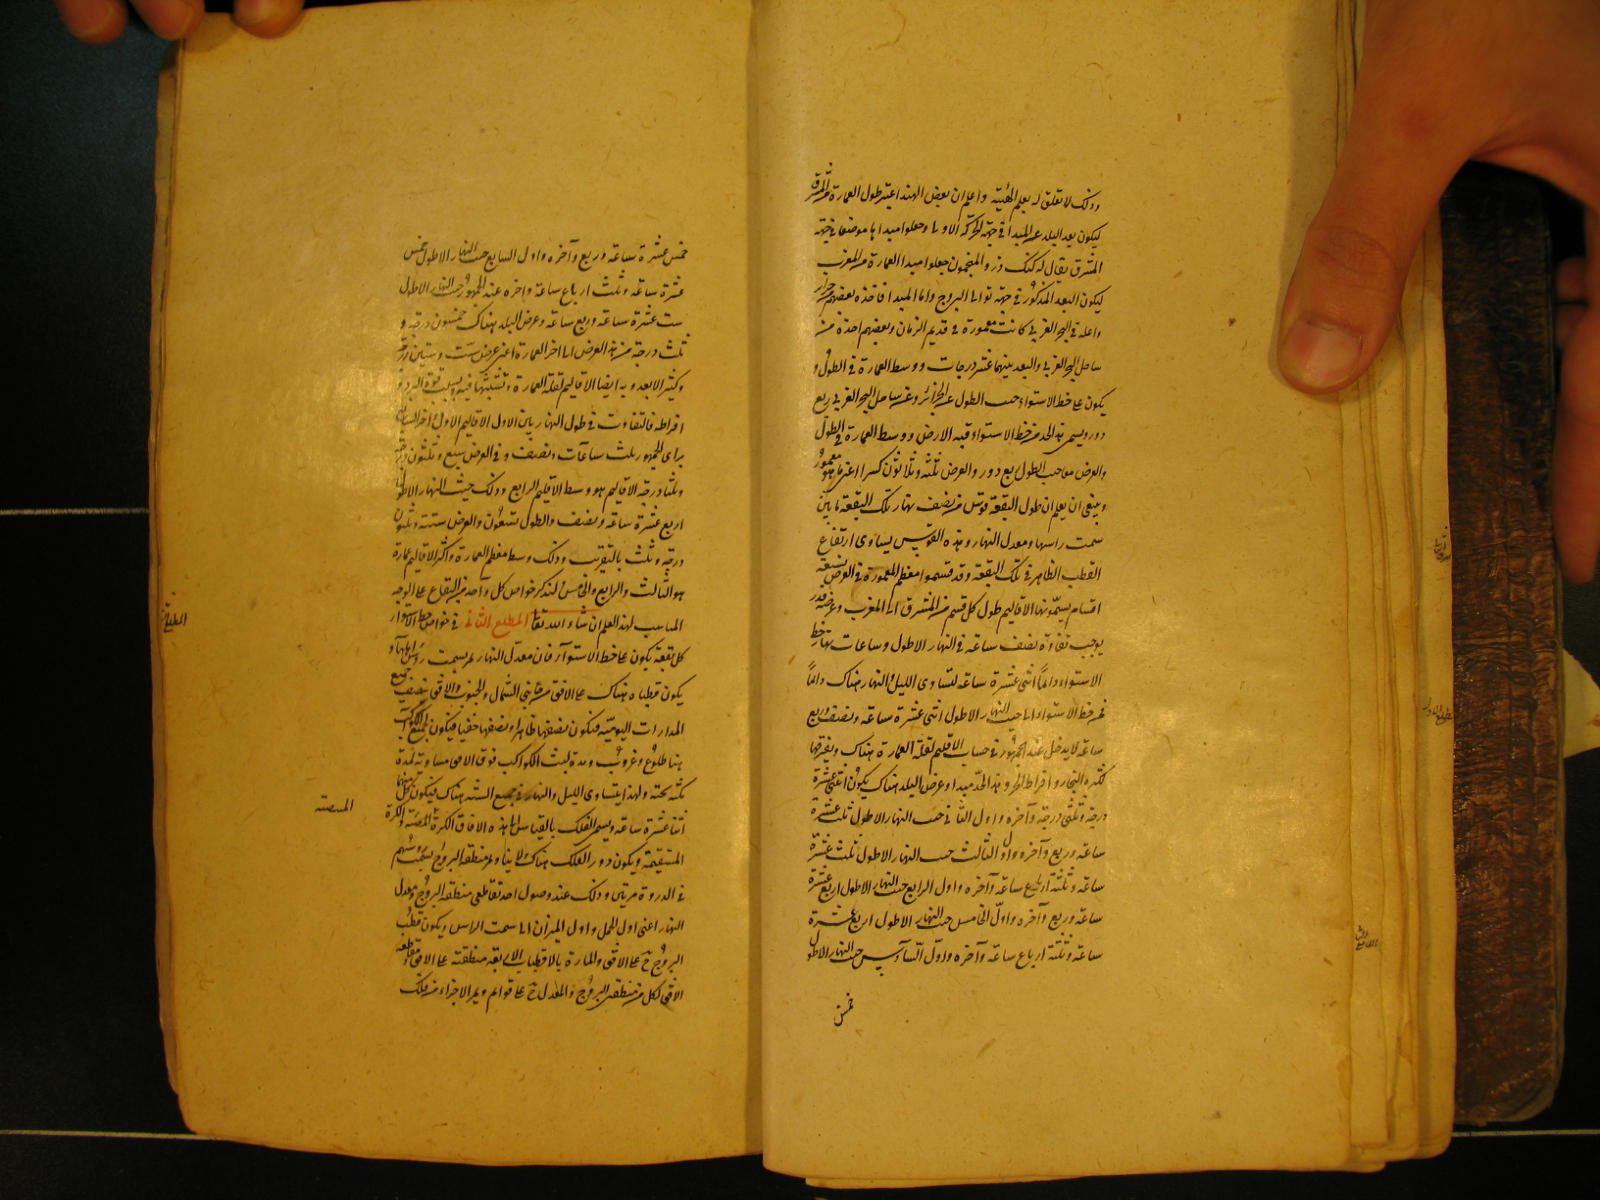 وذلك لا تعلق له بعلم الهيئة واعلم ان بعض الهند اعتبر طول العمارة من المشرق
ليكون بعد البلد عن المبدا في جهة الحركة الاولى وجعلوا مبداها موضعا في جهة
المشرق يقال له كنك دز والمنجمون جعلوا مبدا العمارة من المغرب
ليكون البعد المذكور في جهة توالى البروج واما المبدا فاخذه بعضهم من جزاير
داخلة في البحر الغربي كانت معمورة في قديم الزمان وبعضهم اخذه من
ساحل البحر الغربي والبعد بينهما عشر درجات ووسط العمارة في الطول و
يكون على خط الاستواء حيث الطول عن الجزائر وعن ساحل البحر الغربي ربع
دور ويسمى هذا الحد من خط الاستواء قبة الارض ووسط العمارة في الطول
والعرض معا حيث الطول ربع دور والعرض ثلثة وثلاثون كسرا اعني ما هو معمور
وينبغي ان يعلم ان طول البقعة قوس من نصف نهار تلك البقعة ما بين
سمت راسها ومعدل النهار وهذه القوس يساوى ارتفاع
القطب الظاهر في تلك البقعة وقد قسموا معظم المعمورة في العرض بسبعة
اقسام يسمونها الاقاليم طول كل قسم من المشرق الى المغرب وعرضه قدر
يوجب تفاوة نصف ساعة في النهار الاطول وساعات نهار خط
الاستواء دائما اثنى عشرة ساعة لتساوى الليل والنهار هناك دائما
فمن خط الاستواء الى حيث النهار الاطول اثنى عشرة ساعة ونصف وربع
ساعة لا يدخل عند الجمهور في حساب الاقليم لقلة العمارة هناك وتفرقها
لكثرة البحار وافراط الحر وهذا الحد مبداه وعرض البلد هناك يكون اثنى عشرة
درجة وثلثى درجة وآخره واول الثاني حيث النهار الاطول ثلث عشرة
ساعة وربع وآخره واول الثالث حيث النهار الاطول ثلث عشرة
ساعة وثلثة ارباع ساعة وآخره واول الرابع حيث النهار الاطول اربع عشرة
ساعة وربع وآخره واول الخامس حيث النهار الاطول اربع عشرة
ساعة وثلثة ارباع ساعة وآخره واول السادس حيث النهار الاطول
خمس
خمس عشرة ساعة وربع وآخره واول السابع حيث النهار الاطول خمس
عشرة ساعة وثلث ارباع ساعة وآخره عند الجمهور حيث النهار الاطول
ست عشرة ساعة وربع ساعة وعرض البلد هناك خمسون درجة و
ثلث درجة من هذا العرض الى اخر العمارة اعني عرض ست وستين درجة
وكثير لا يعدونه ايضا الاقاليم لقلة العمارة وتشتتها فيه بسبب قوة البرد و
افراطه فالتفاوت في طول النهار بين الاول الاقاليم الاول واخر السابع
براى الجمهور ثلث ساعات ونصف وفي العرض سبع وثلثون درجة
وثلثا درجة الاقاليم هو وسط الاقليم الرابع وذلك حيث النهار الاطول
اربع عشرة ساعة ونصف والطول تسعون والعرض ستة وثلثون
درجة وثلث بالتقريب وذلك وسط معظم العمارة واكثر الاقاليم عمارة
هو الثالث والرابع والخامس ولنذكر خواص كل واحد من البقاع على الوجه
المناسب لهذا العلم ان شاء الله تعالى المطلع الثاني في خواص خط الاستواء
كل بقعة يكون على خط الاستواء فان معدل النهار يمر بسمت رؤس اهلها و
يكون قطباه هناك على الافق من جانبي الشمال والجنوب والافق ينصف جميع
المدارات اليومية فيكون نصفها ظاهرا ونصفها خفيا فيكون لجميع الكواكب
هنا طلوع وغروب ومدة لبث الكواكب فوق الافق مساوية لمدة
مكثه تحته ولهذا يتساوى الليل والنهار في جميع السنة هناك فيكون كل منهما
اثنا عشرة ساعة ويسمى الفلك بالقياس الى هذه الافاق الكرة المنتصبة والكرة
المستقيمة ويكون دور الفلك هناك دولابيا وتمر منطقة البروج بسمت رؤسهم
في الدورة مرتين وذلك عند وصول احد تقاطعي منطقة البروج ومعدل
النهار اعنى اول الحمل واول الميزان الى سمت الراس ويكون قطب
البروج ح على الافق والمارة بالاقطاب الاربعة منطبقة على الافق مقاطعة
الافق لكل من منطقة البروج والمعدل ح على قوائم ويمر الاجزاء من فلك
المطلع الثاني
المنتصبة